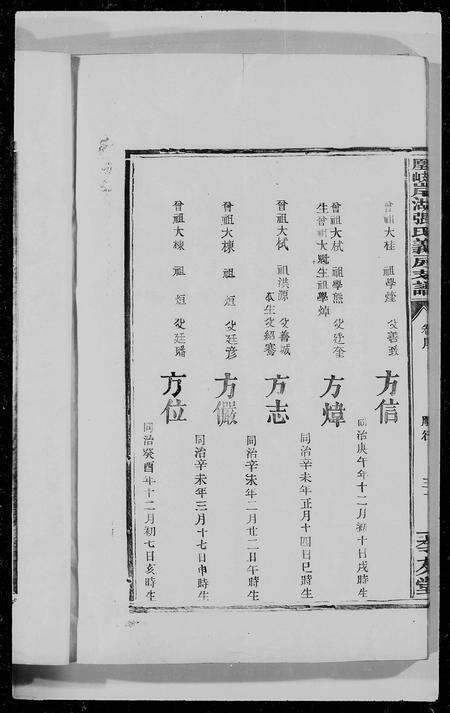 鳳嶼岸湖張氏義房支譜
孝友堂
曾祖大桂 祖學煃 父善致
方信
同治庚午年十二月初十日戌時生
曾祖大栻 祖學熊 父廷奎
生曾祖大 生祖學焯
方煒
同治辛未年正月十四日巳時生
曾祖大栻 祖洪源 父善誠
本生父紹騫
方志
同治辛未年二月廿二日午時生
曾祖大棟 祖烜 父廷彥
方儼
同治辛未年三月十七日申時生
曾祖大棟 祖烜 父廷璠
方位
同治癸酉年十二月初七日亥時生